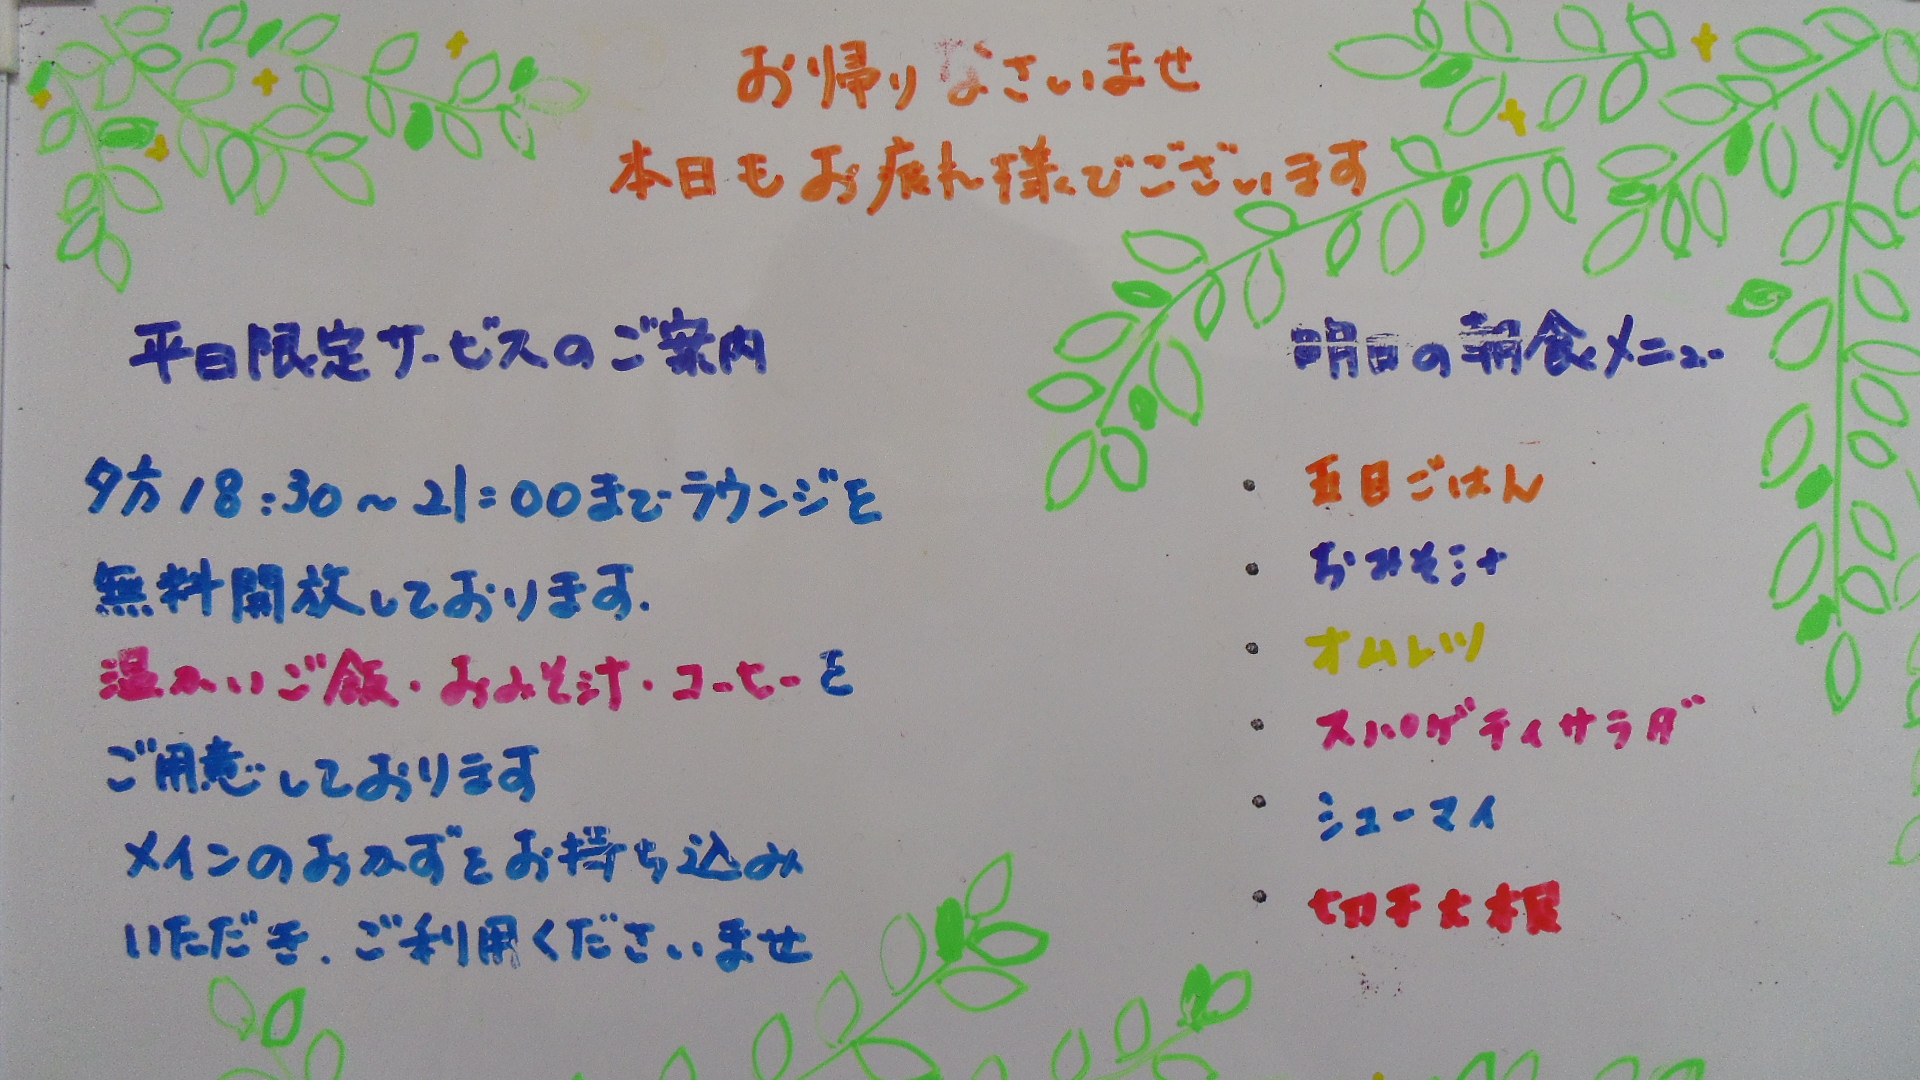 お帰りなさいませ
本日もお疲れ様でございます
平日限定サービスのご案内
夕方18:30〜21:00までラウンジを
無料開放しております.
温かいご飯・おみそ汁・コーヒーを
ご用意しております
メインのおかずをお持ち込み
いただき、ご利用くださいませ
明日の朝食メニュー
・五目ごはん
・おみそ汁
・オムレツ
・スパゲティサラダ
・シューマイ
・切干大根